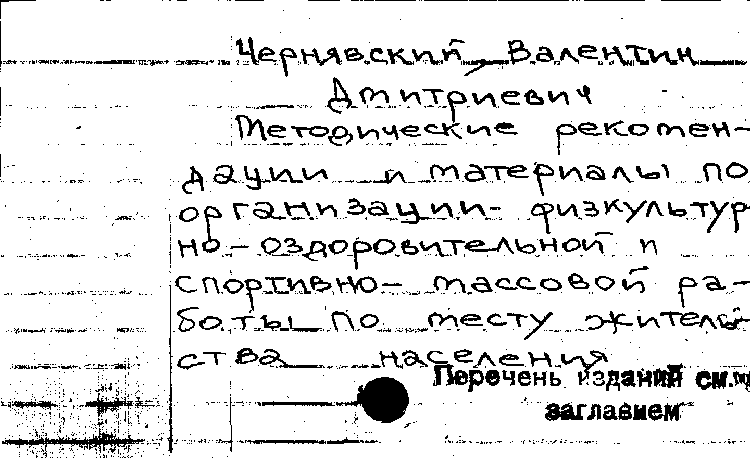 Чернявский, Валентин
Дмитриевич
Методические рекомен-
дации и материалы по
организации физкультур
но-оздоровительной и
спортивно-массовой ра-
боты по месту житель
ства населения
Перечень изданий см. под
заглавием